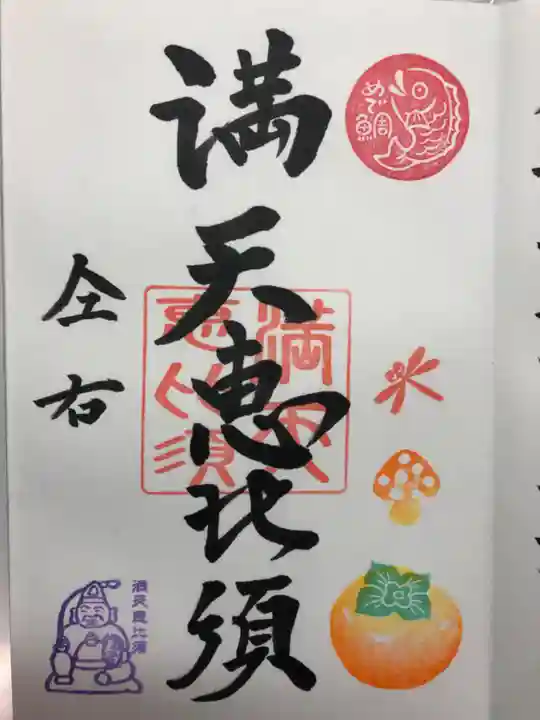 めで鯛
満天恵比須
満天
恵比須
仝右
満天恵比須